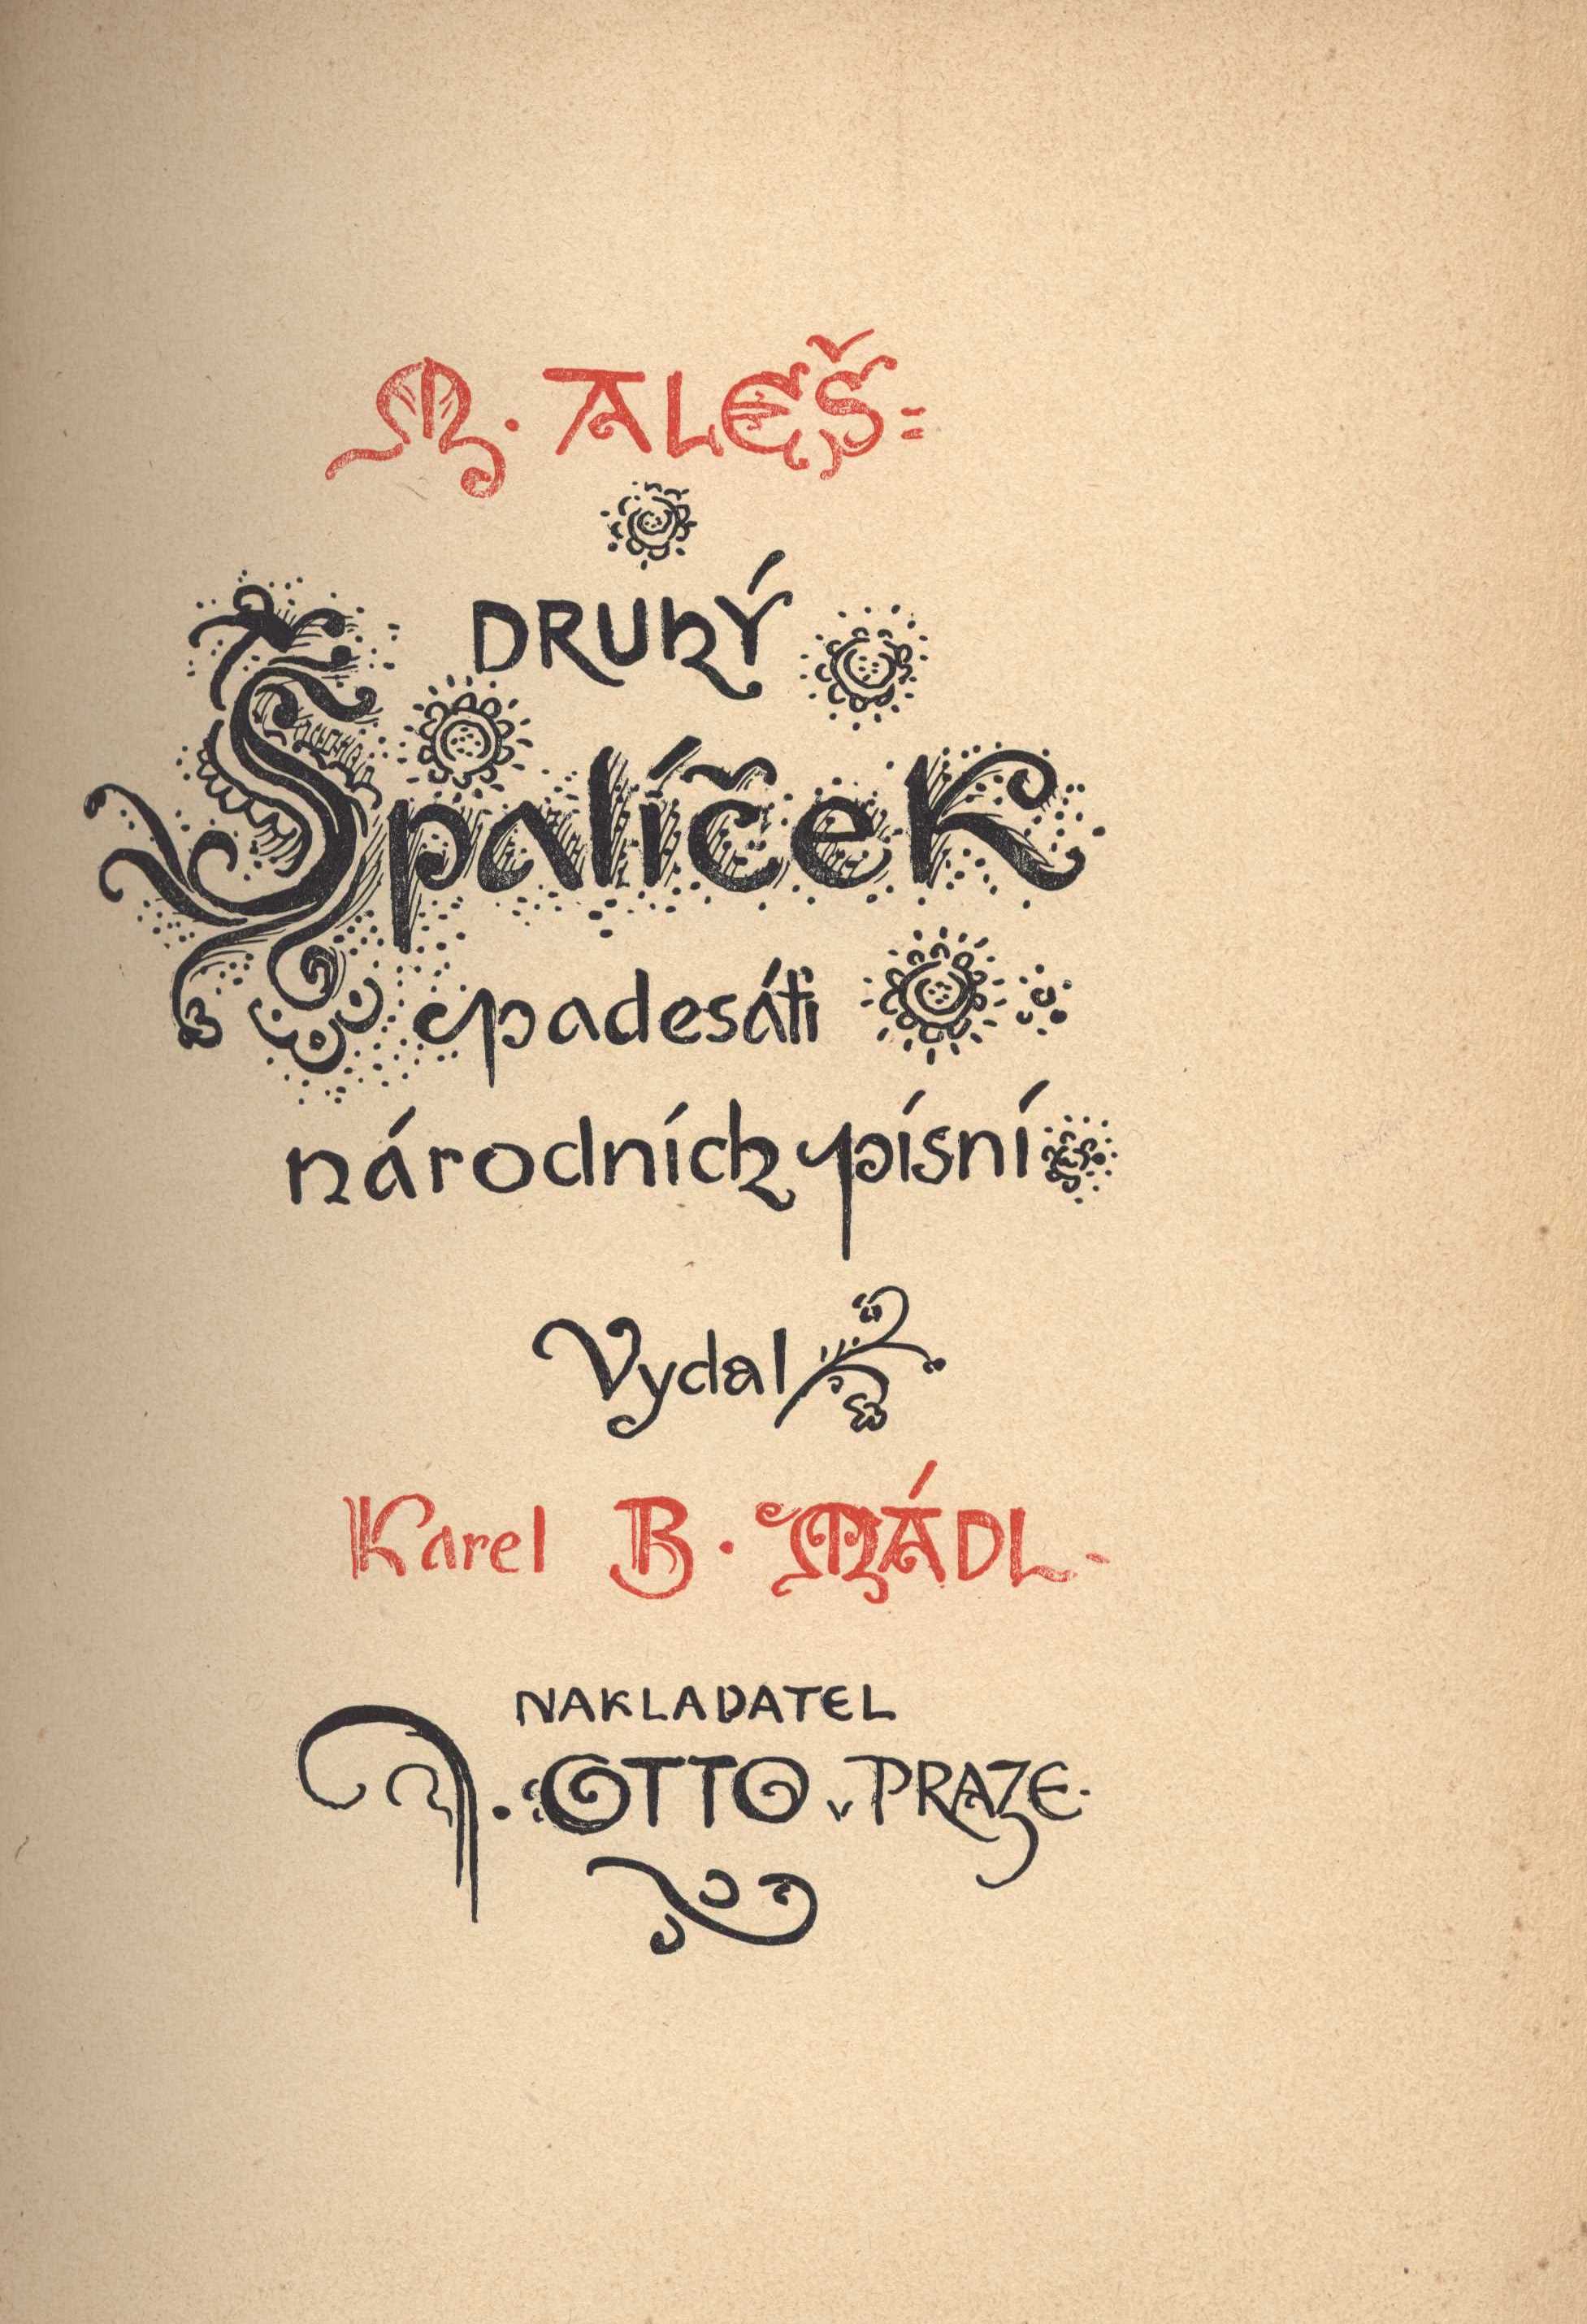 M. ALEŠ:
DRUHÝ
Špalíček
padesáti
národních písní
Vydal
Karel B. MÁDL.
NAKLADATEL
J. OTTO v PRAZE.